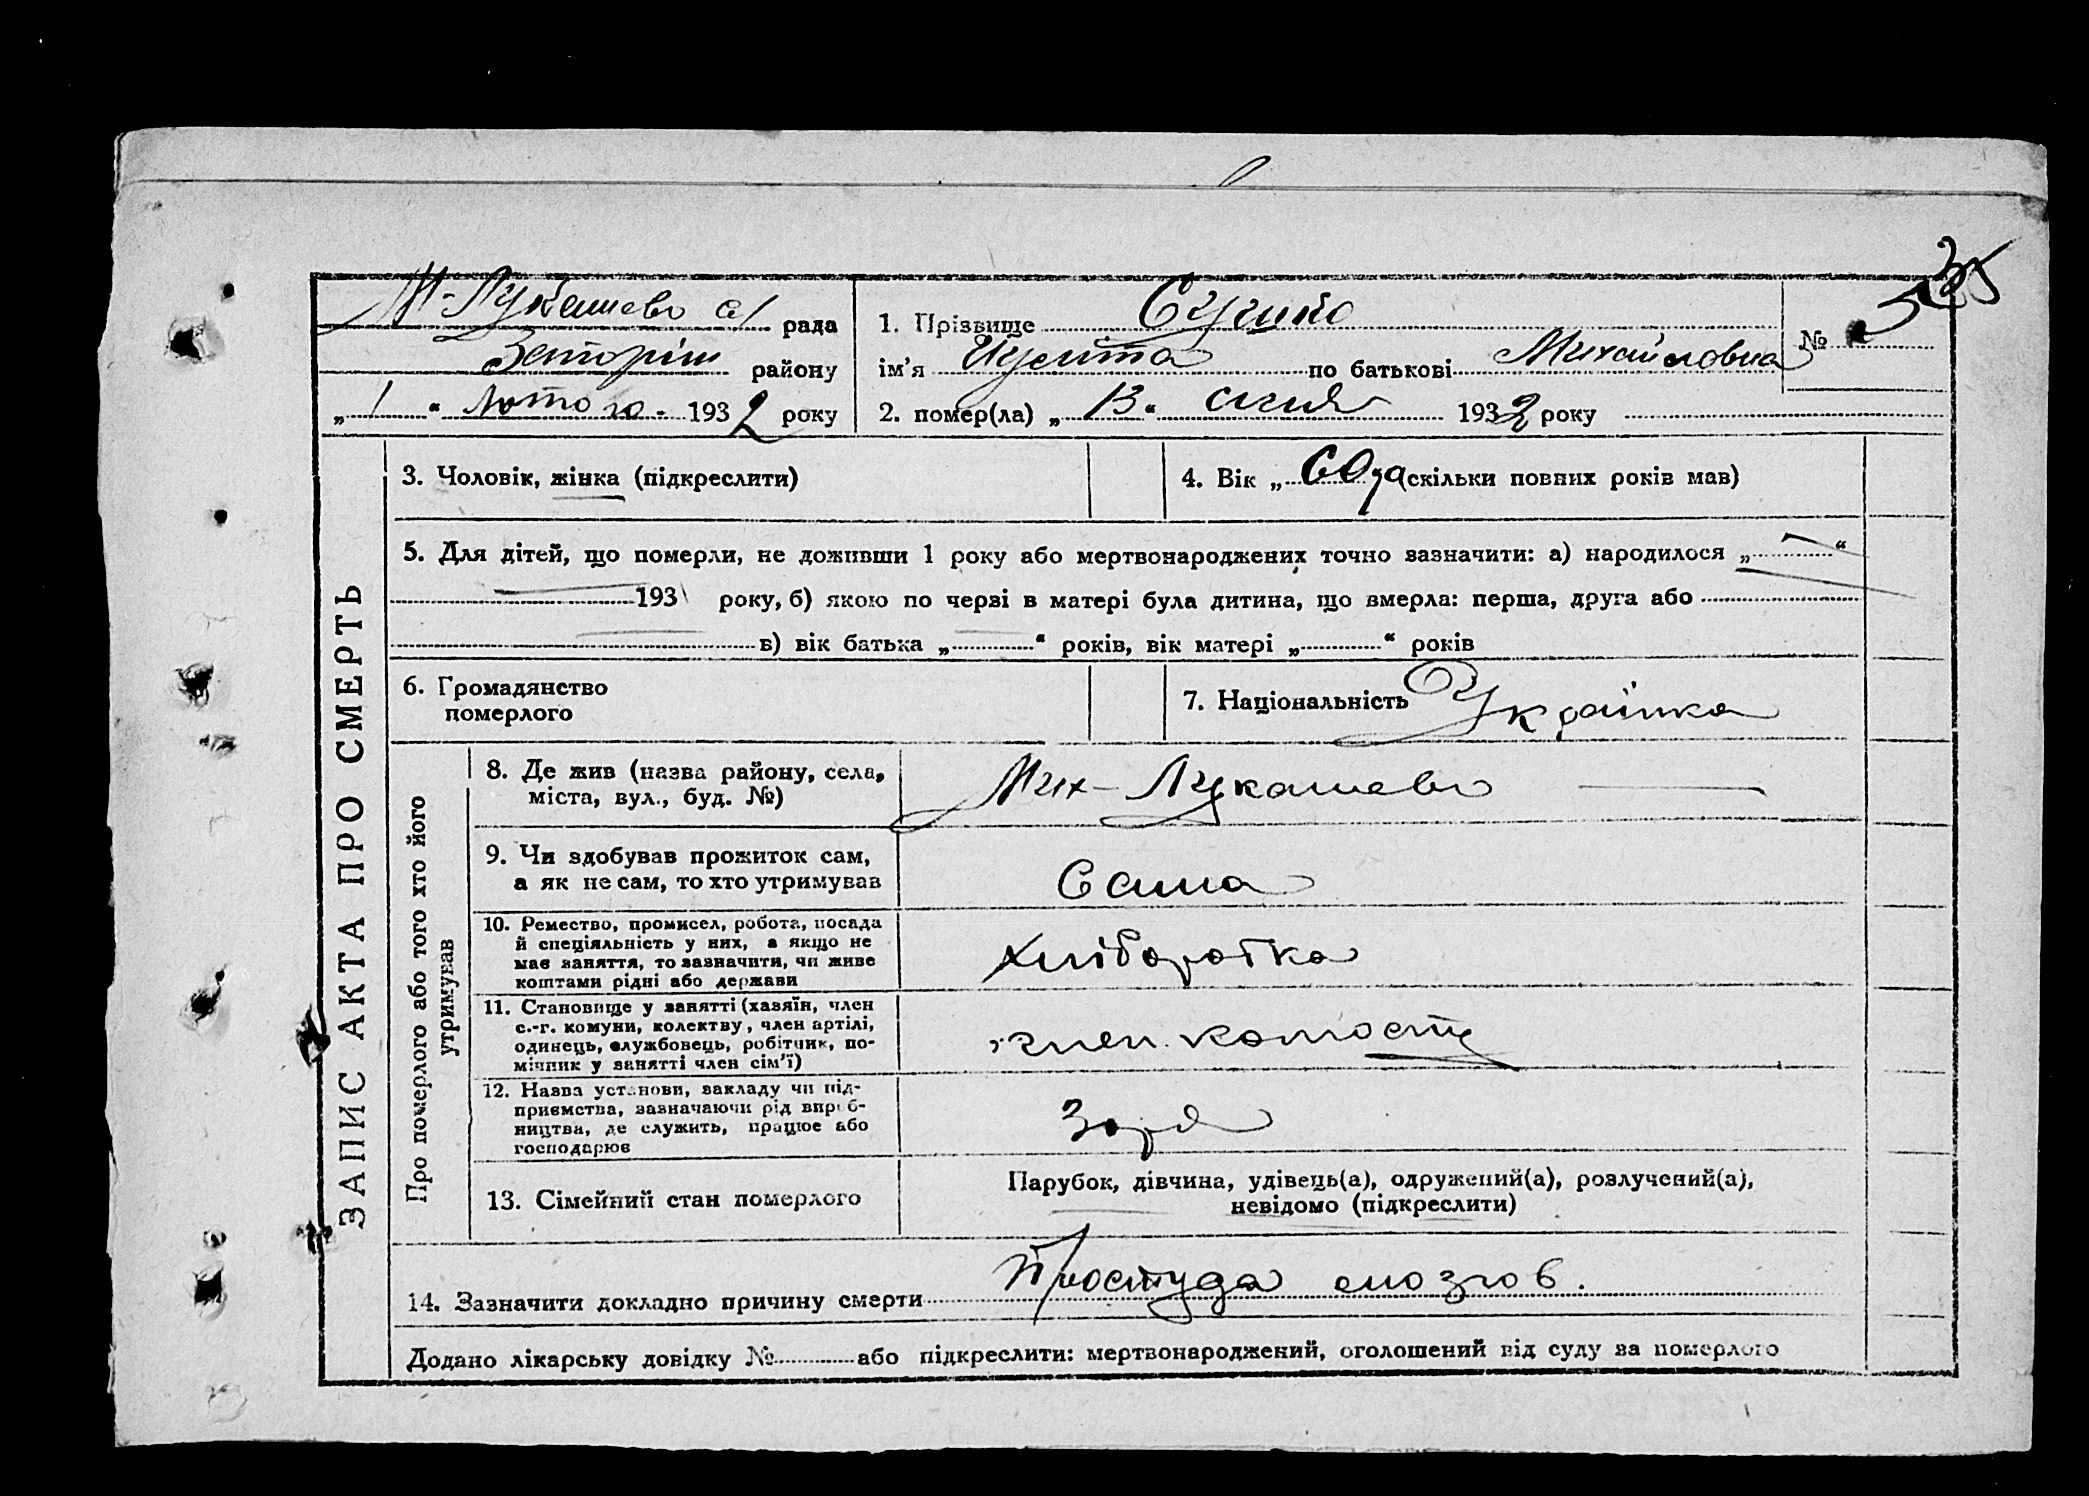 М-Лукашево с/ рада
району
„ 1 “ Лютого - 1932 року
1. Прізвище
ім’я по батькові Михайловна
№
35
2. помер(ла) „ 13 “ січня 1932 року
ЗАПИС АКТА ПРО СМЕРТЬ
3. Чоловік, жінка (підкреслити)
4. Вік „ 60 (скільки повних років мав)
5. Для дітей, що померли, не доживши 1 року або мертвонароджених точно зазначити: а) народилося „ “
193 року, б) якою по черзі в матері була дитина, що вмерла: перша, друга або
в) вік батька „ “ років, вік матері „ “ років
6. Громадянство
померлого
7. Національність Українка
Про померлого або того хто його
утримував
8. Де жив (назва району, села,
міста, вул., буд. №)
Мих-Лукашево
9. Чи здобував прожиток сам,
а як не сам, то хто утримував
Сама
10. Ремество, промисел, робота, посада
й спеціяльність у них, а якщо не
має заняття, то зазначити, чи живе
коштами рідні або держави
Хліборобка
11. Становище у занятті (хазяїн, член
с.-г. комуни, колективу, член артілі,
одинець, службовець, робітник, по-
мічник у занятті член сім’ї)
член
12. Назва установи, закладу чи під-
приємства, зазначаючи рід вироб-
ництва, де служить, працює або
господарює
Зоря
13. Сімейний стан померлого
Парубок, дівчина, удівець(а), одружений(а), розлучений(а),
невідомо (підкреслити)
14. Зазначити докладно причину смерти Простуда мозгов.
Додано лікарську довідку № або підкреслити: мертвонароджений, оголошений від суду за померлого